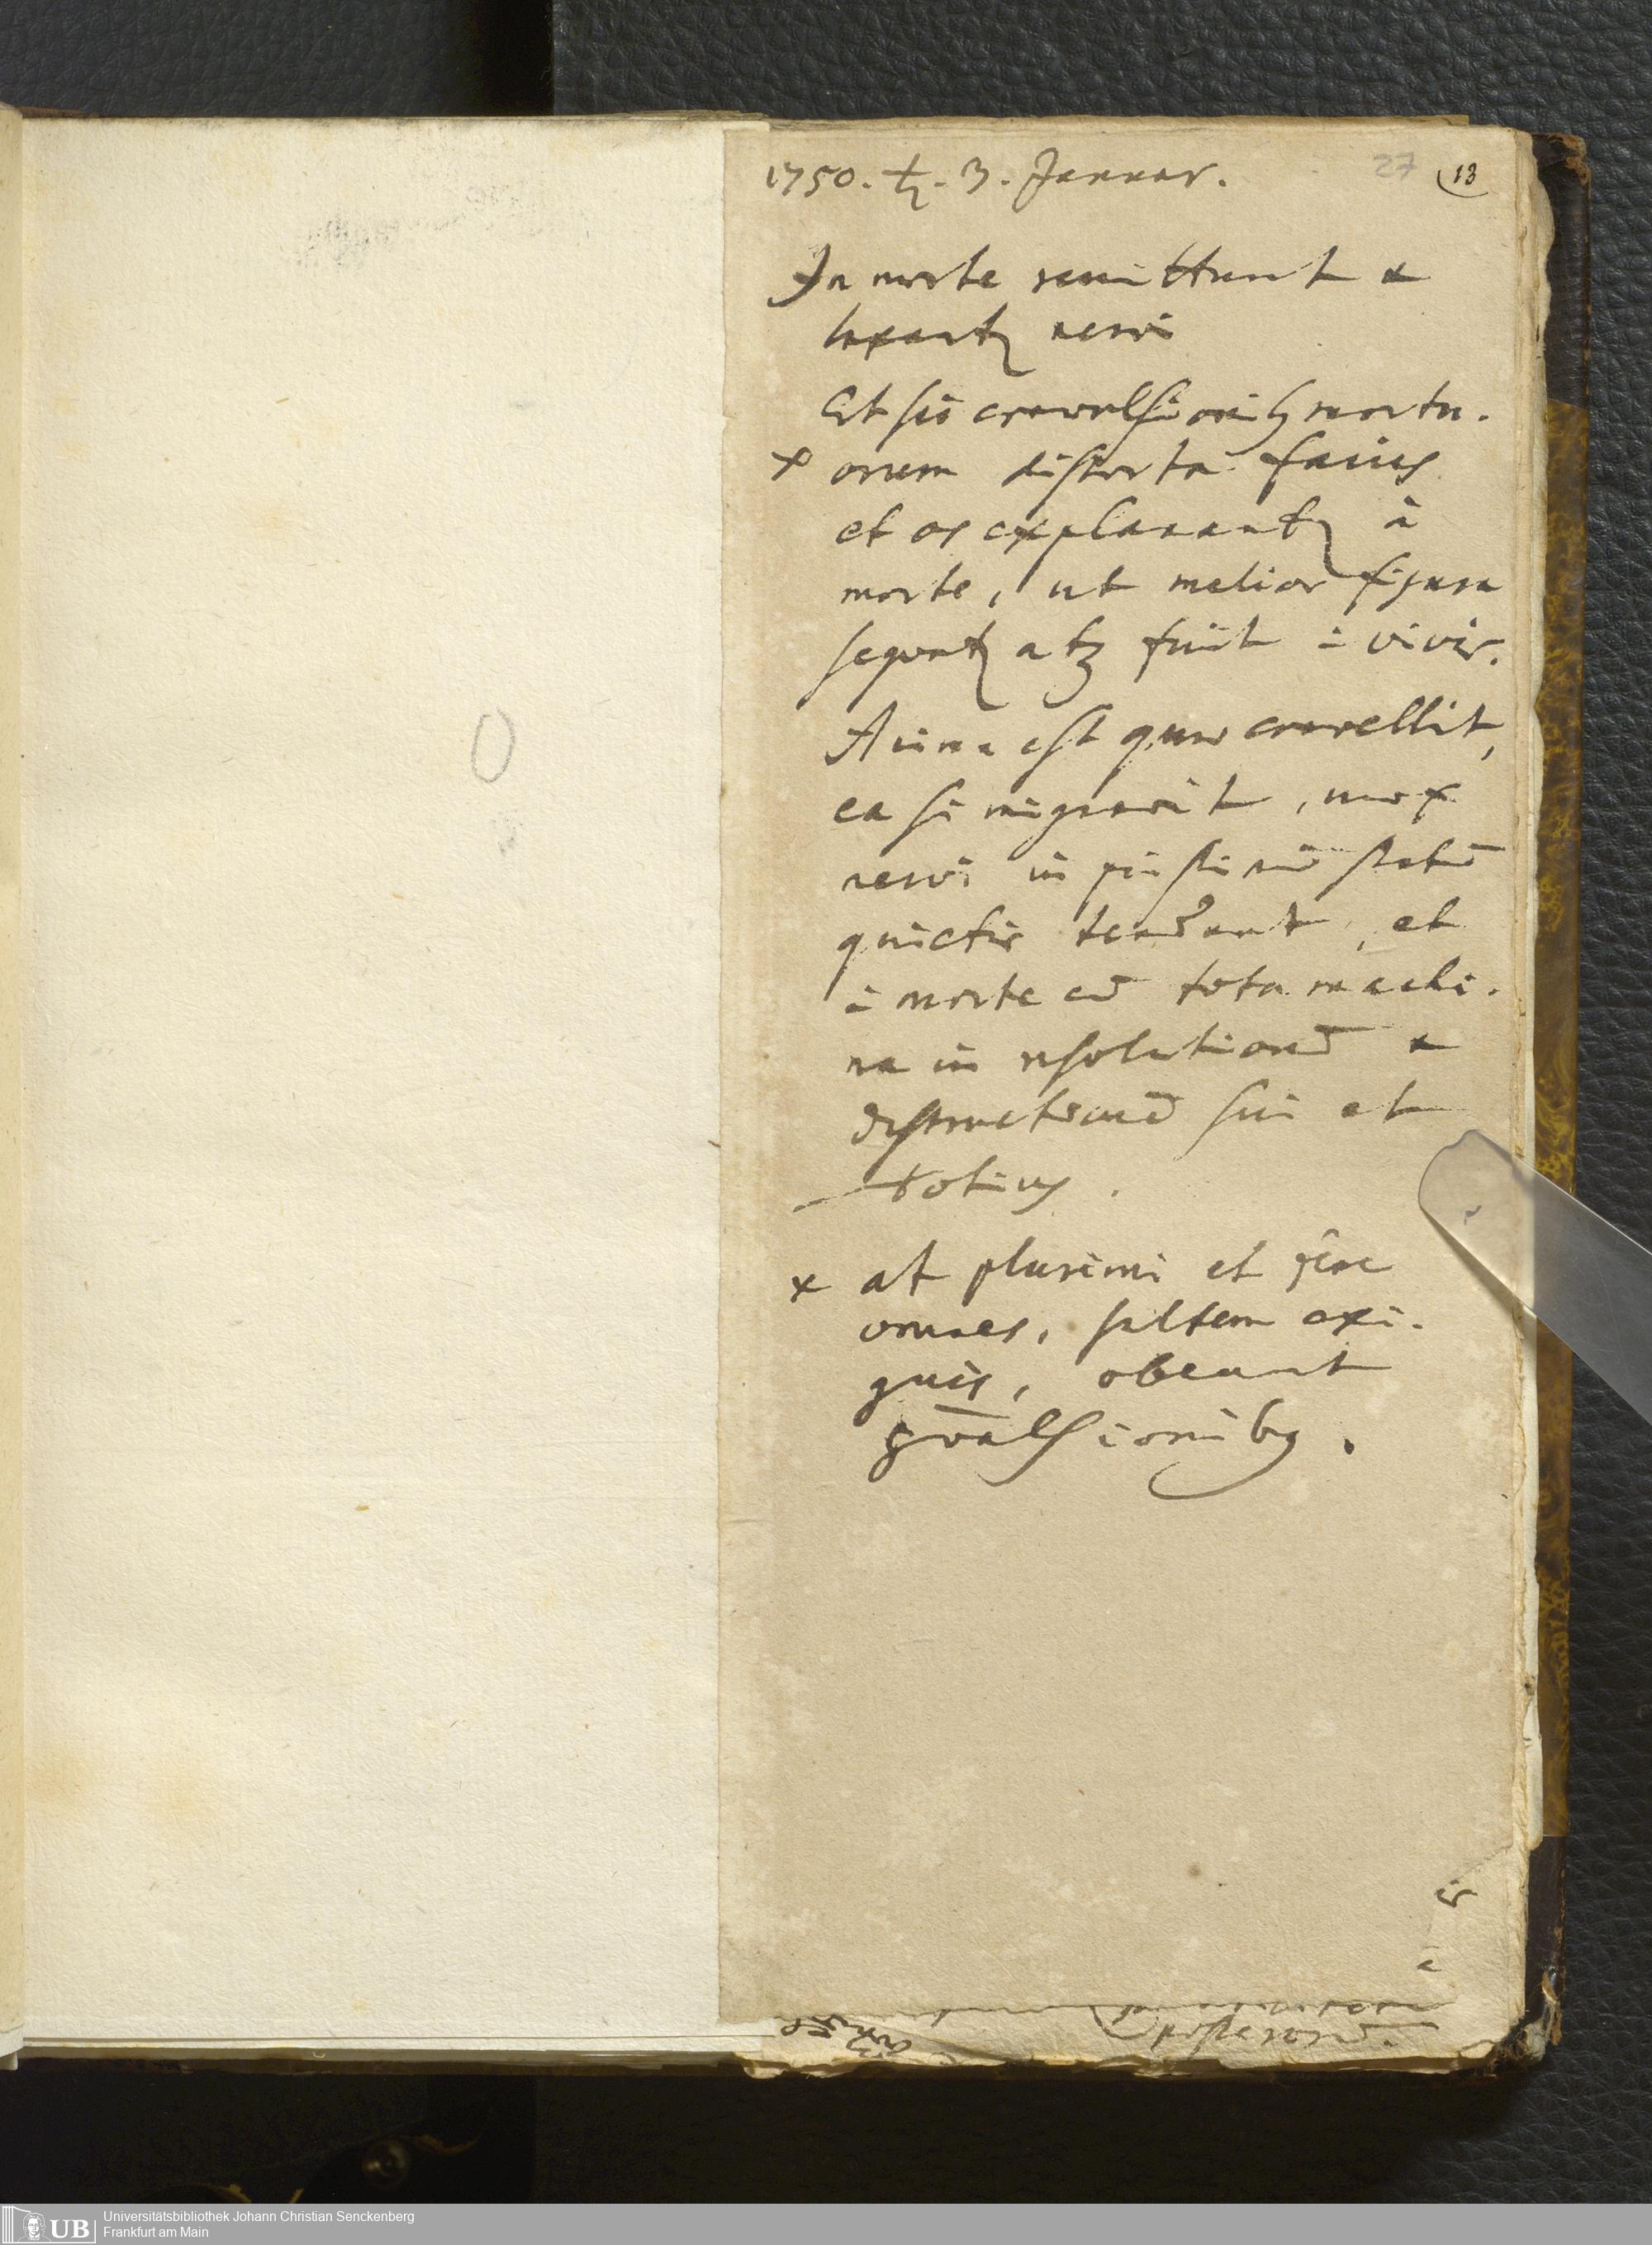 1750. ♄. 3. Januar.
27
13
In morte remittunt &
laxantr nervi
Et sic convulsionib9 mortu.
x orum distorta facies
et os explanantr à
morte, ut melior figura
seqvatr atq fuit i vivis.
Aima est quae convellit,
ea si migravit, mox
nervi in pristinū statū
quietis tendunt, et
i morte cū tota machi.
na in resolutionē &
destructionē sui et
totius.
x at plurimi et fere
omnes, saltem exi.
guis, obeunt
convulsionibg.
0
ir
posteriorū.
Universitätsbibliothek Johann Christian Senckenberg
Frankfurt am Main
UB